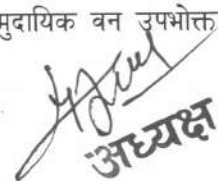 मुदायिक वन उपभोक्त
अध्यक्ष